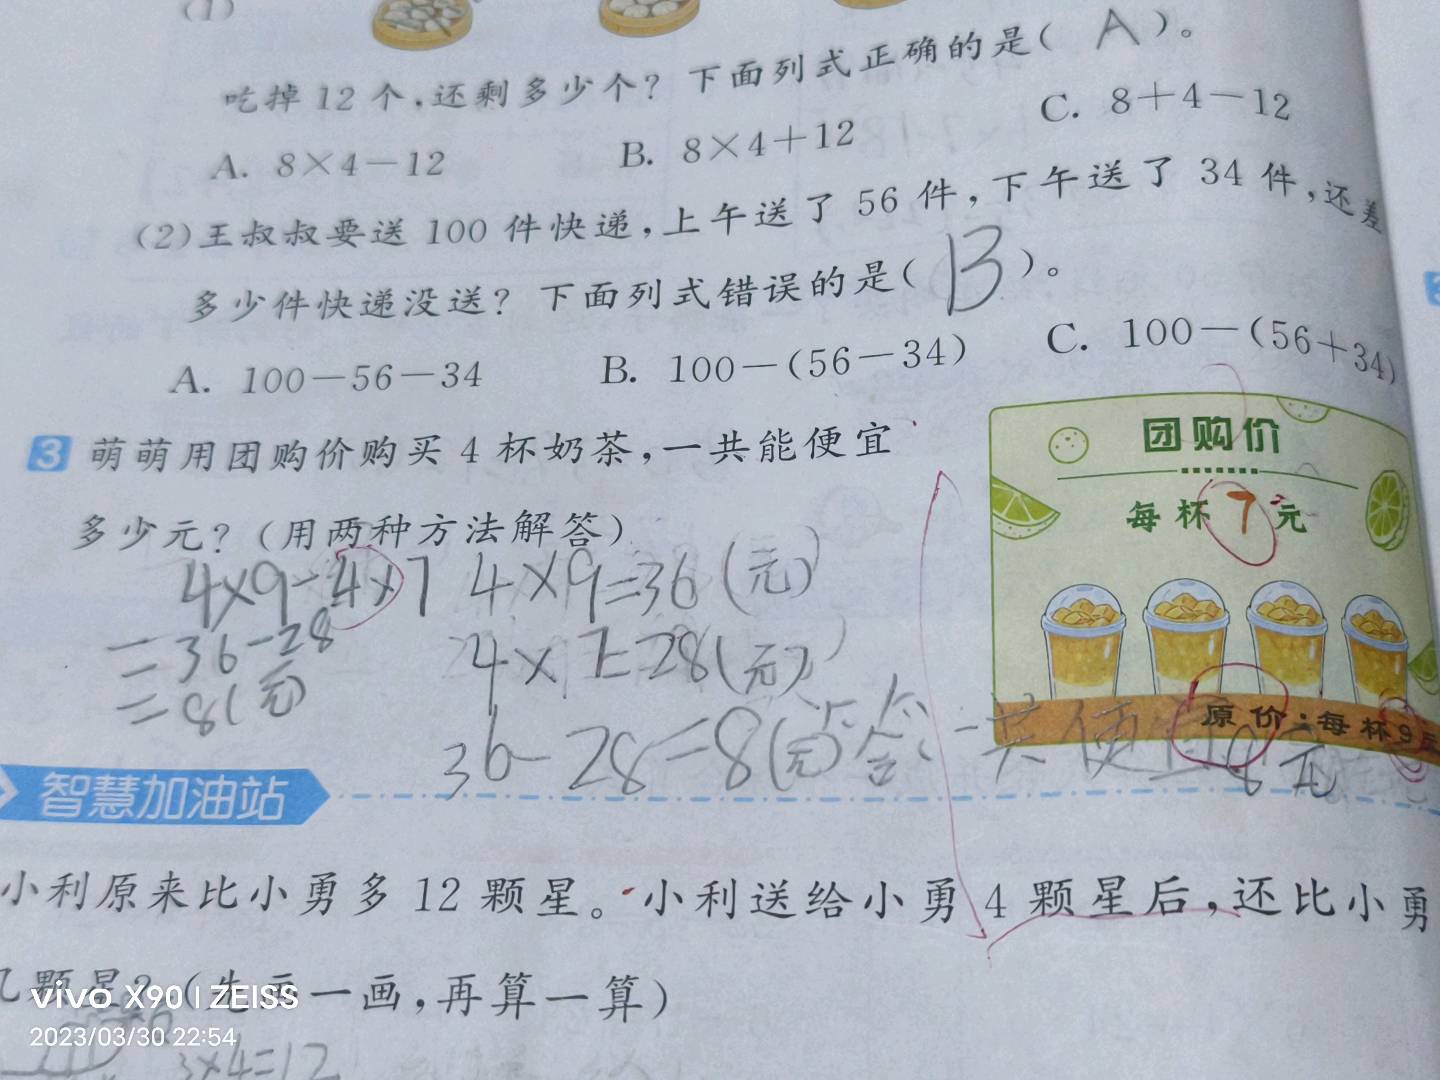 (1)
吃掉 12 个，还剩多少个？下面列式正确的是( A )。
A. 8×4－12 B. 8×4＋12 C. 8＋4－12
(2)王叔叔要送 100 件快递，上午送了 56 件，下午送了 34 件，还差
多少件快递没送？下面列式错误的是( B )。
A. 100－56－34 B. 100－(56－34) C. 100－(56＋34)
3 萌萌用团购价购买 4 杯奶茶，一共能便宜
多少元？(用两种方法解答)
团购价
每杯 7 元
原价：每杯 9 元
4×9－4×7
=36－28
=8(元)
4×9=36(元)
4×7=28(元)
36－28=8(元)
答：一共便宜8元
智慧加油站
小利原来比小勇多 12 颗星。小利送给小勇 4 颗星后，还比小勇
几颗星？(先画一画，再算一算)
3×4=12
vivo X90 | ZEISS
2023/03/30 22:54